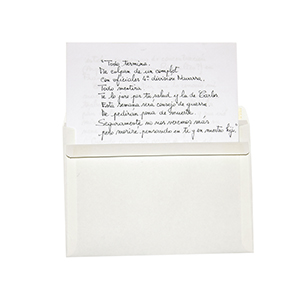 "Todo termina.
Me culpan de un complot
con oficiales 6ª división Navarra.
Todo mentira
Te lo juro por tu salud y la de Carlos
Esta semana será consejo de guerra.
Me pedirán pena de muerte
Seguramente no nos veremos más
pero moriré pensando en ti y en nuestro hijo"